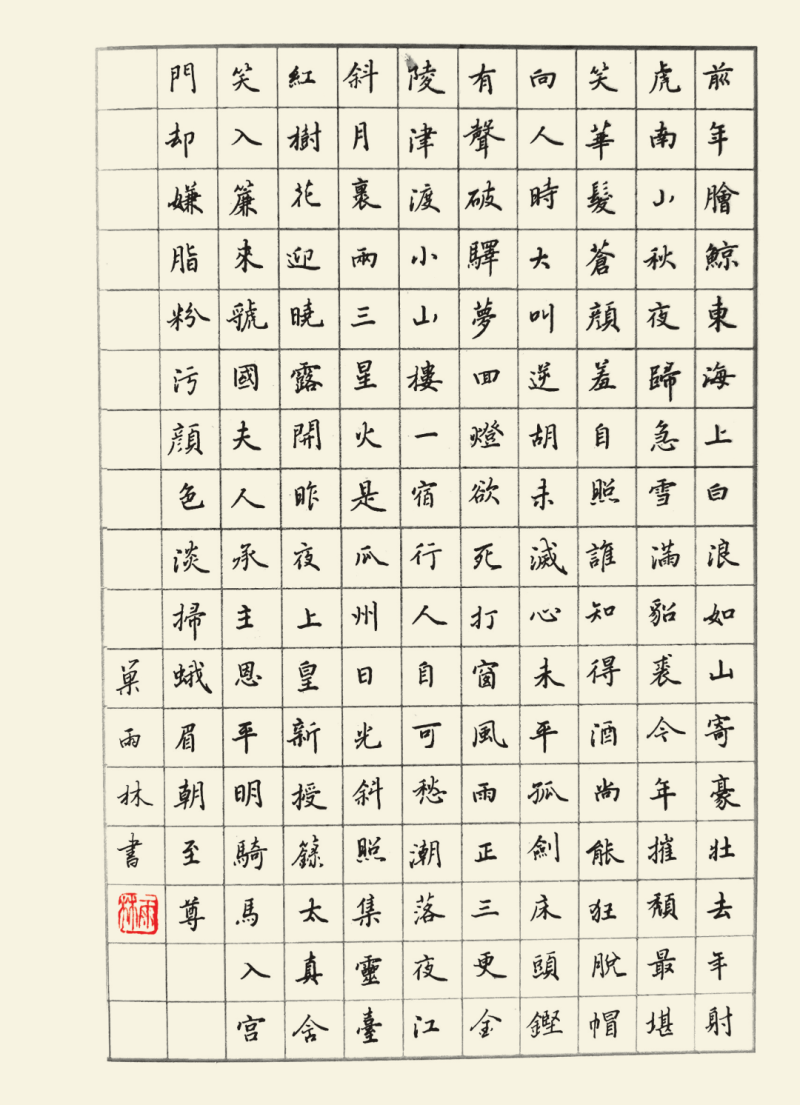 前年膾鯨東海上白浪如山寄豪壯去年射
虎南山秋夜歸急雪滿貂裘今年摧頹最堪
笑華髮蒼顏羞自照誰知得酒尚能狂脫帽
向人時大叫逆胡未滅心未平孤劍床頭鏗
有聲破驛夢回燈欲死打窗風雨正三更金
陵津渡小山樓一宿行人自可愁潮落夜江
斜月裏兩三星火是瓜州日光斜照集靈臺
紅樹花迎曉露開昨夜上皇新授籙太真含
笑入簾來虢國夫人承主恩平明騎馬入宮
門却嫌脂粉污顏色淡掃蛾眉朝至尊
巢雨林書
雨林